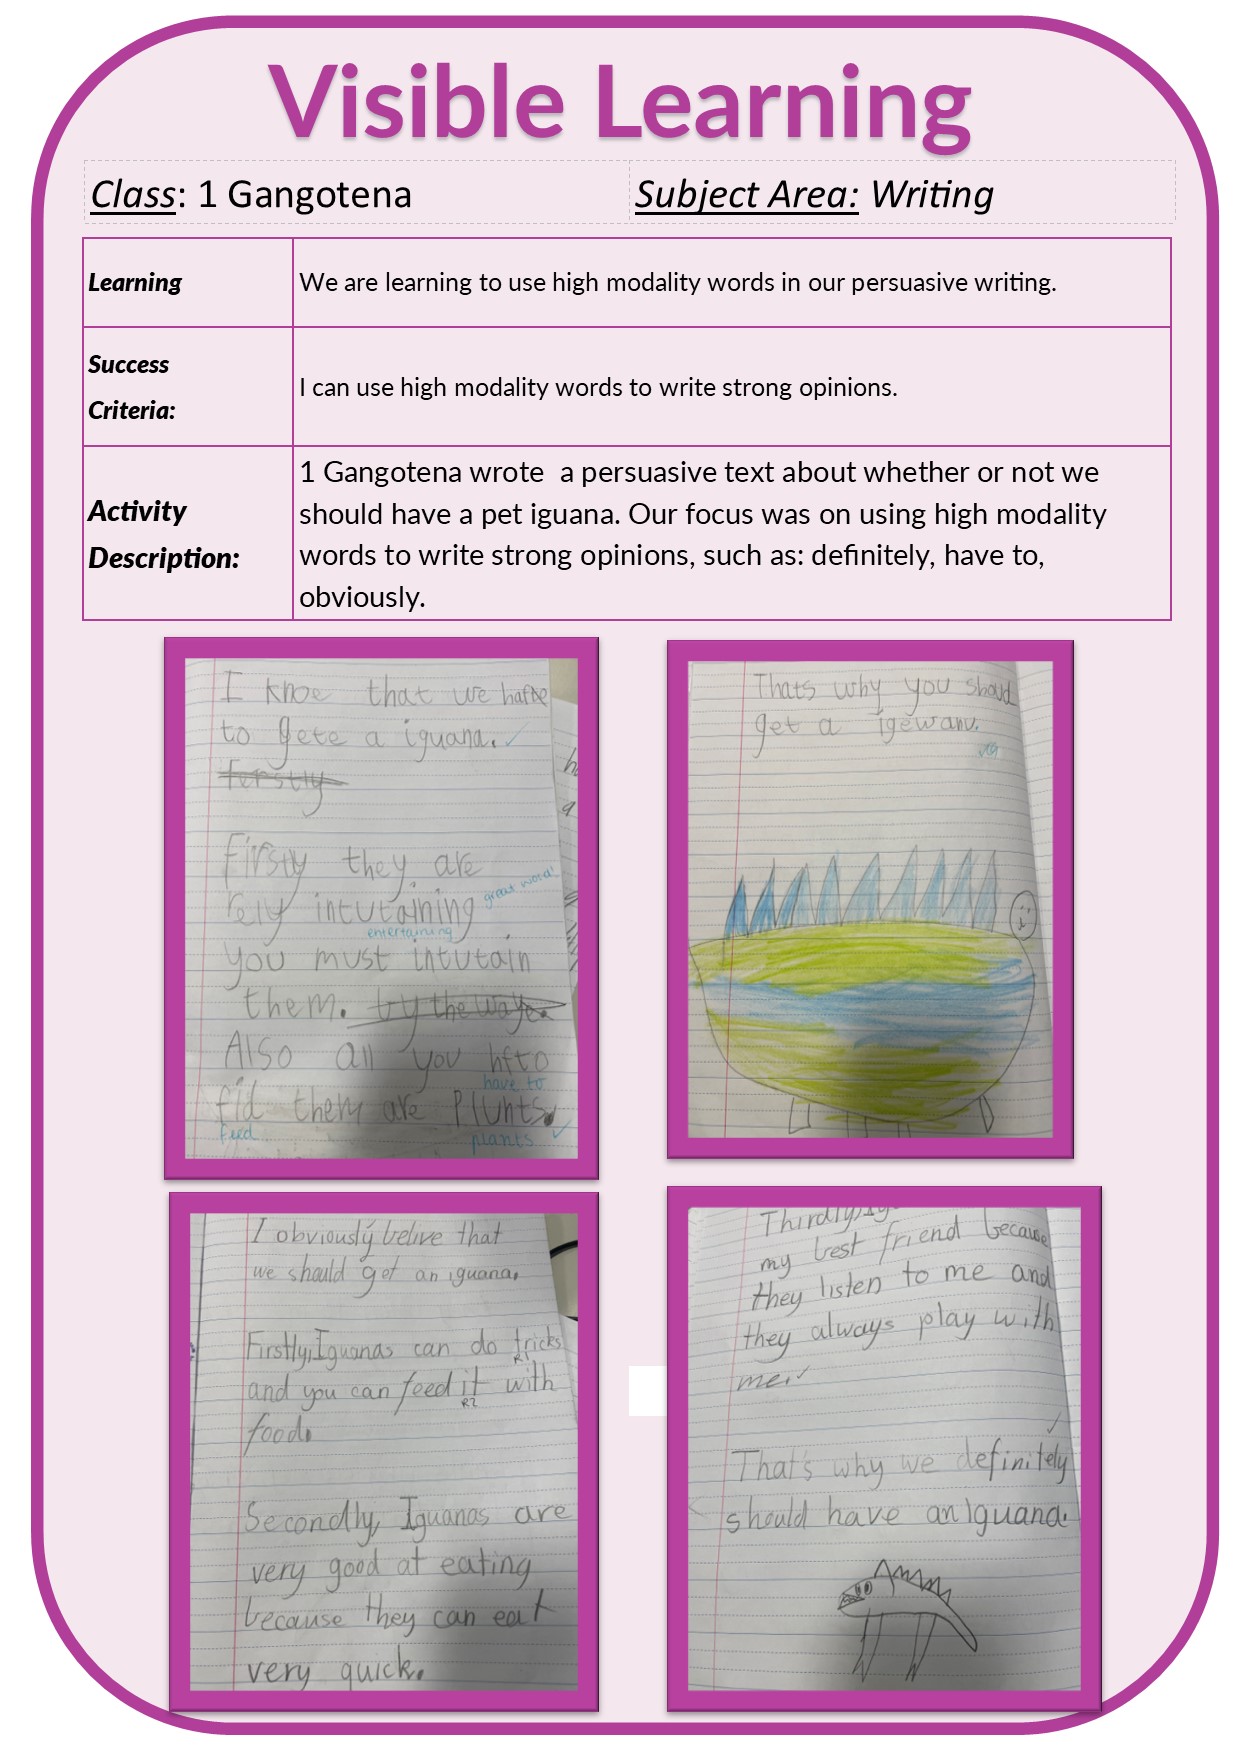 Visible Learning
Class: 1 Gangotena
Subject Area: Writing
Learning
We are learning to use high modality words in our persuasive writing.
Success
Criteria:
I can use high modality words to write strong opinions.
Activity
Description:
1 Gangotena wrote  a persuasive text about whether or not we
should have a pet iguana. Our focus was on using high modality
words to write strong opinions, such as: definitely, have to,
obviously.
I knoe that we
to gete a iguana.
ferstly
Firsly they are
great word!
rely intutaining
entertaining
You must intutain
them. by the way.
Also all you hfto
have to
fid them are plunts.
feed
plants
Thats why you shoud
get a igewanu.
I obviously belive that
we should get an iguana.
Firstly, Iguanas can do tricks
R1
and you can feed it with
R2
food.
Secondly, Iguanas are
very good at eating
because they can eat
very quick.
Thirdly,
my best friend because
they listen to me and
they always play with
me.
That's why we definitely
should have an Iguana.